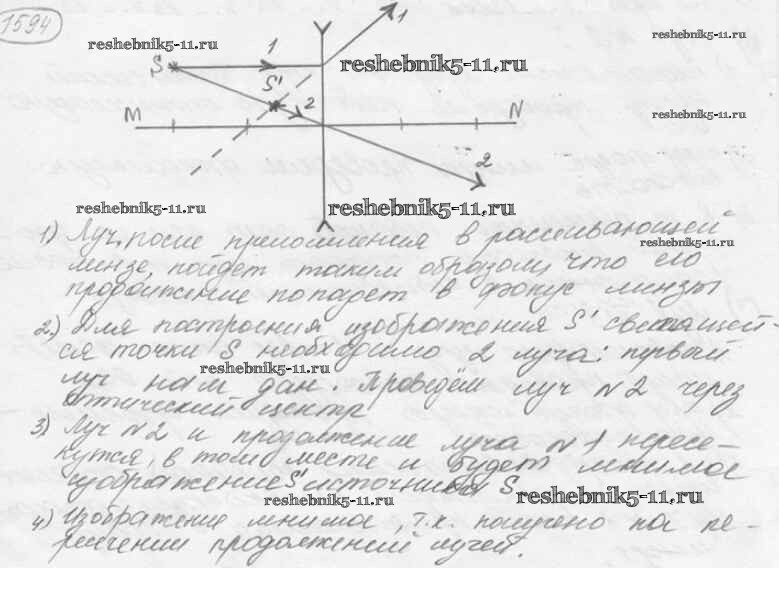 1594
reshebnik5-11.ru
reshebnik5-11.ru
1
1
S
reshebnik5-11.ru
S'
2
M
N
reshebnik5-11.ru
2
reshebnik5-11.ru
reshebnik5-11.ru
1) Луч, после преломления в рассеивающей
reshebnik5-11.ru
линзе, пойдет таким образом, что его
продолжение попадет в фокус линзы
2.) Для построения изображения S' светящей-
ся точки S необходимо 2 луча: первый
reshebnik5-11.ru
луч нам дан. Проведём луч N2 через
оптический центр
3) Луч N2 и продолжение луча N1 пересе-
кутся, в том месте и будет мнимое
изображение S' источника S
reshebnik5-11.ru
reshebnik5-11.ru
4) Изображение мнимое, т.к. получено на пе-
ресечении продолжений лучей.